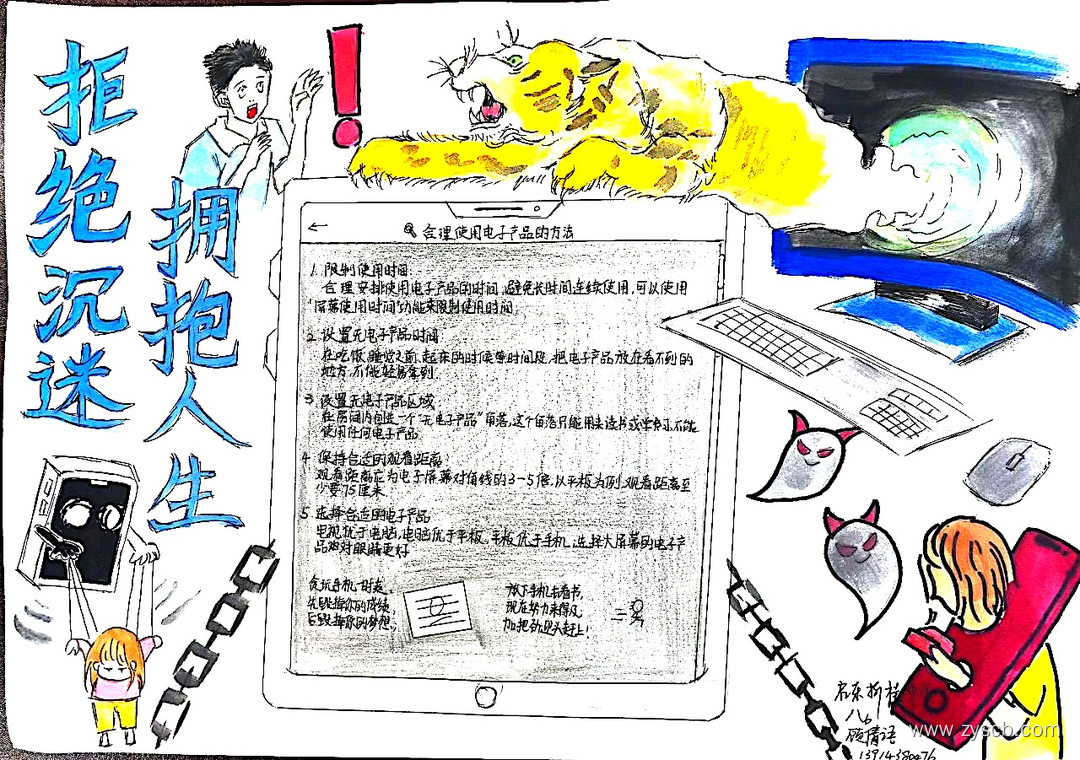 拒绝沉迷
拥抱人生
合理使用电子产品的方法
1. 限制使用时间:
合理安排使用电子产品的时间,避免长时间连续使用,可以使用
屏幕使用时间功能来限制使用时间;
2. 设置无电子产品时间
在吃饭、睡觉之前、起床的时候等时间段,把电子产品放在看不到的
地方,不能轻易拿到.
3. 设置无电子产品区域
在房间内创造一个"无电子产品"角落,这个角落只能用来读书或学习,不能
使用任何电子产品
4. 保持合适的观看距离:
观看距离应为电子屏幕对角线的3-5倍,以平板为例,观看距离至
少要75厘米.
5. 选择合适的电子产品
电视优于电脑,电脑优于平板,平板优于手机,选择大屏幕的电子产
品对眼睛更好
贪玩手机一时爽,
先毁掉你的成绩,
后毁掉你的梦想.
放下手机去看书,
现在努力来得及,
加把劲迎头赶上!
启东折桂
八6
顾倩语
www.zyscb.com